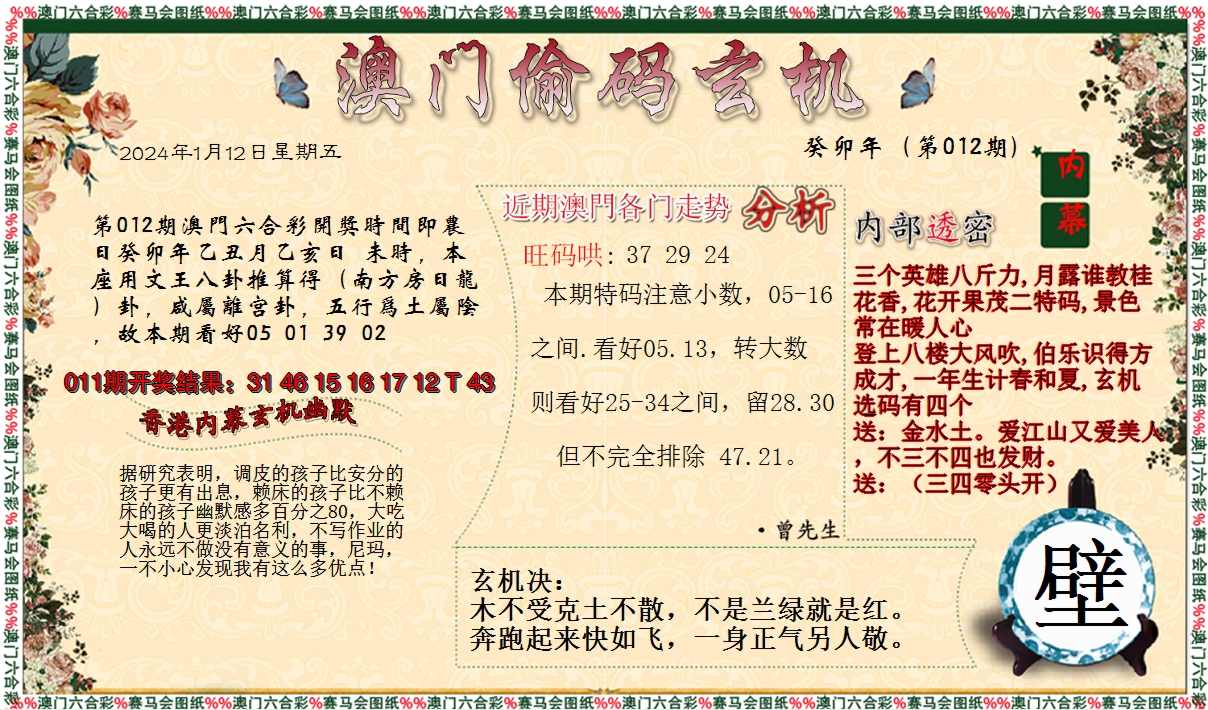 %%澳门六合彩%赛马会图纸%%澳门六合彩%赛马会图纸%%澳门六合彩%赛马会图纸%%澳门六合彩%赛马会图纸%%澳门六合彩%赛马会图纸%%澳门六合彩%赛马会图纸%%
澳门偷码玄机
2024年1月12日星期五
癸卯年（第012期）
内幕
第012期澳門六合彩開獎時間即農
日癸卯年乙丑月乙亥日 未時，本
座用文王八卦推算得（南方房日龍
）卦，咸屬離宫卦，五行爲土屬陰
，故本期看好05 01 39 02
011期开奖结果：31 46 15 16 17 12 T 43
香港内幕玄机幽默
据研究表明，调皮的孩子比安分的
孩子更有出息，赖床的孩子比不赖
床的孩子幽默感多百分之80，大吃
大喝的人更淡泊名利，不写作业的
人永远不做没有意义的事，尼玛，
一不小心发现我有这么多优点！
近期澳門各门走势 分析
旺码哄: 37 29 24
本期特码注意小数，05-16
之间.看好05.13，转大数
则看好25-34之间，留28.30
但不完全排除 47.21。
·曾先生
内部透密
三个英雄八斤力,月露谁教桂
花香,花开果茂二特码,景色
常在暖人心
登上八楼大风吹,伯乐识得方
成才,一年生计春和夏,玄机
选码有四个
送：金水土。爱江山又爱美人
，不三不四也发财。
送：（三四零头开）
玄机决：
木不受克土不散，不是兰绿就是红。
奔跑起来快如飞，一身正气另人敬。
壁
%%澳门六合彩%赛马会图纸%%澳门六合彩%赛马会图纸%%澳门六合彩%赛马会图纸%%澳门六合彩%赛马会图纸%%澳门六合彩%赛马会图纸%%澳门六合彩%赛马会图纸%%